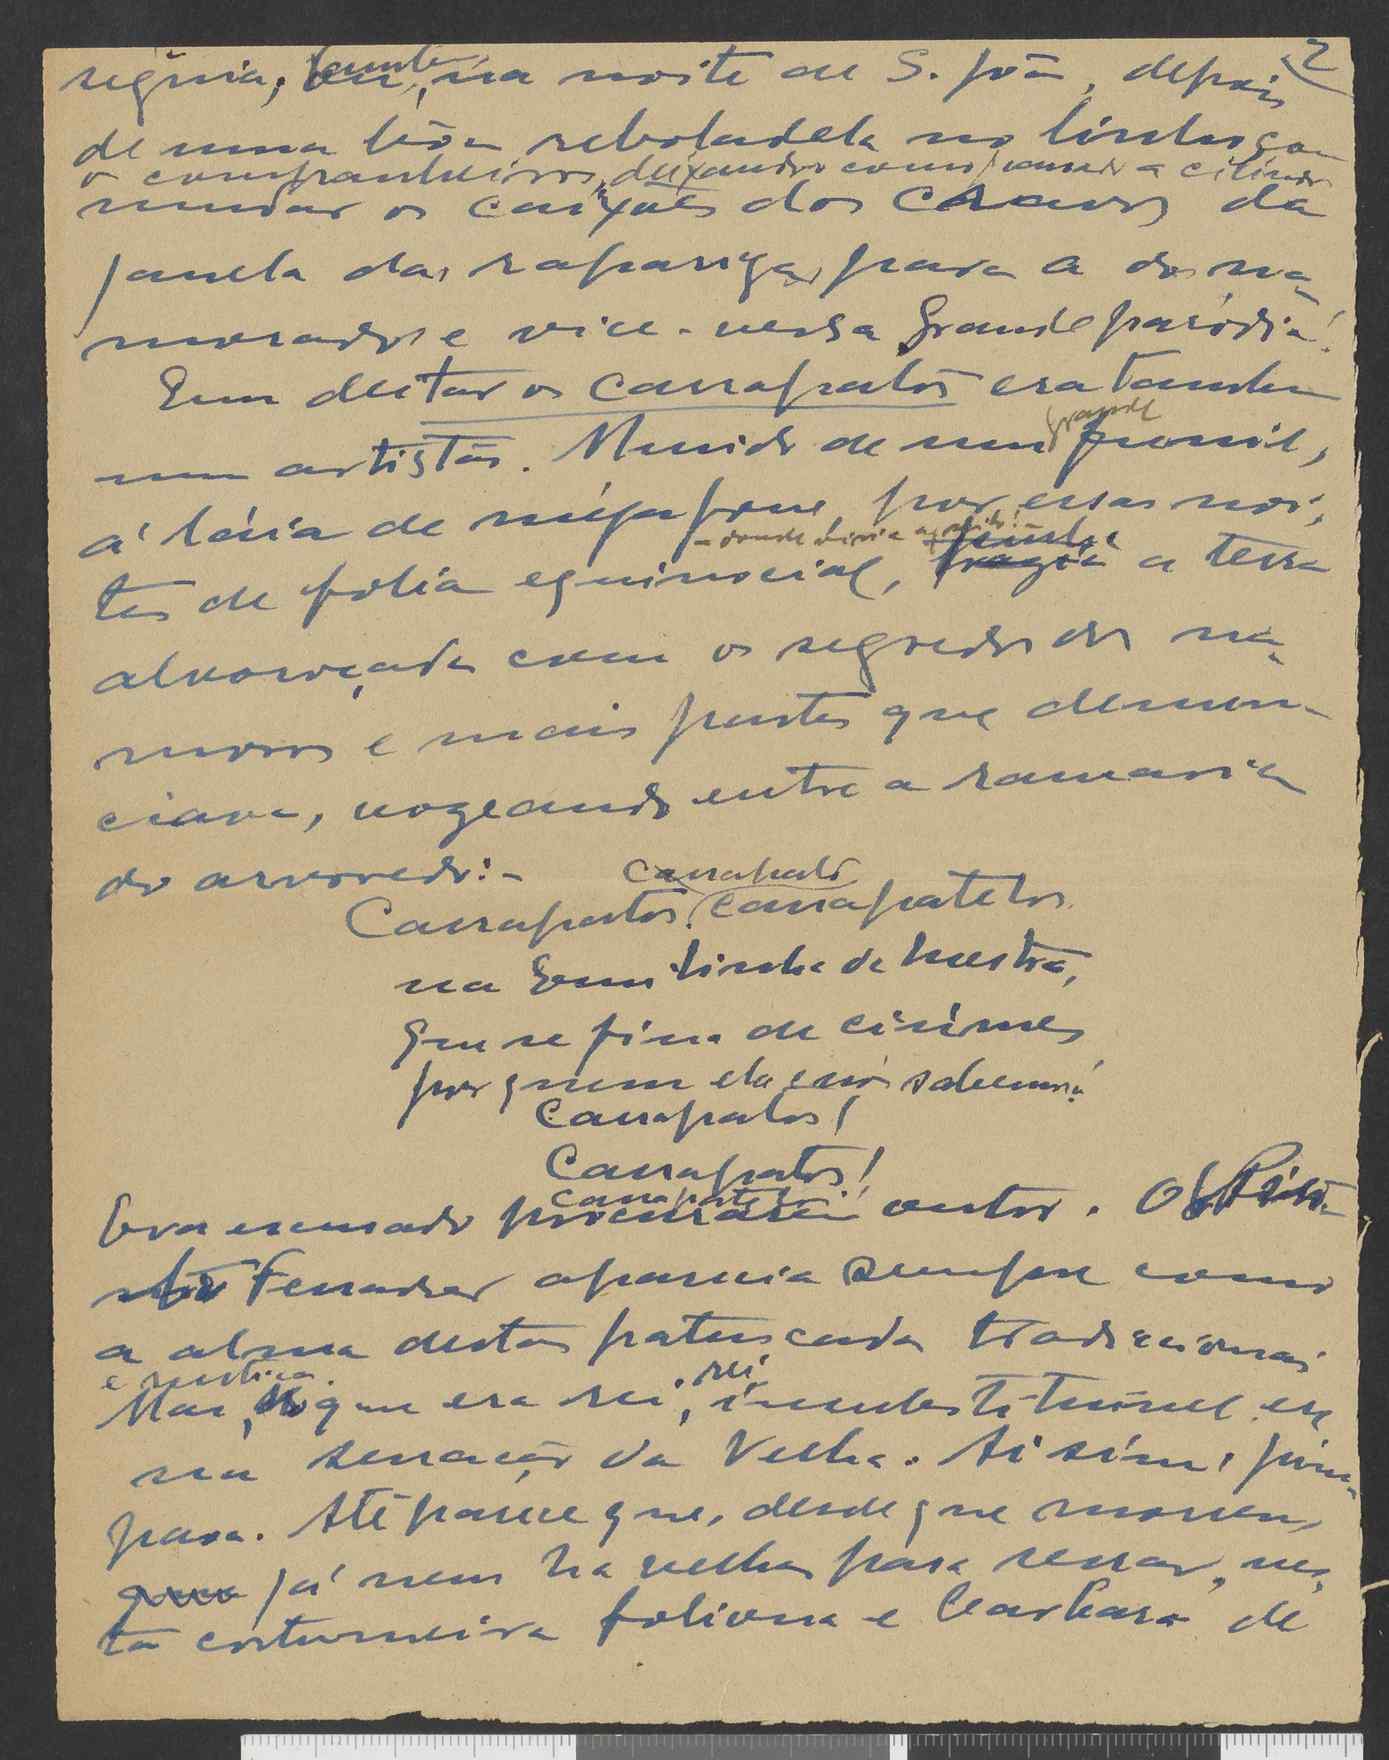 2
ou, na noite de S. João, depois
de uma bôa reboladela no
o companheiros, deixando como
mudar os caixões dos cravos da
janela das raparigas para a dos na-
morados e vice-versa. Grande paródia!
Em deitar os carrapatos era tambem
um artistão. Munido de um grande funil,
á láia de megafone, por essas noi-
tes de folia equinocial, a terra
alvoroçada com os segredos dos na-
moros e mais partes que denun-
ciava, vozeando entre a ramaria
do arvoredo:-
carrapato
Carrapatos, carrapatelos
na da
Que se fina de ciúmes
por quem ela e nós sabemos!
Carrapatos!
Carrapatos!
carrapatelos!
Era escusado procurarem autor. O
Ferrador aparecia sempre como
a alma destas patuscadas tradicionais
e rusticas.
Mas, no que era rei, rei insubstituivel, era
na serração da Velha. Ai sim:
para. Até parece que, desde que morreu,
já nem ha velhas para serrar, nes-
ta costumeira foliona e barbara de